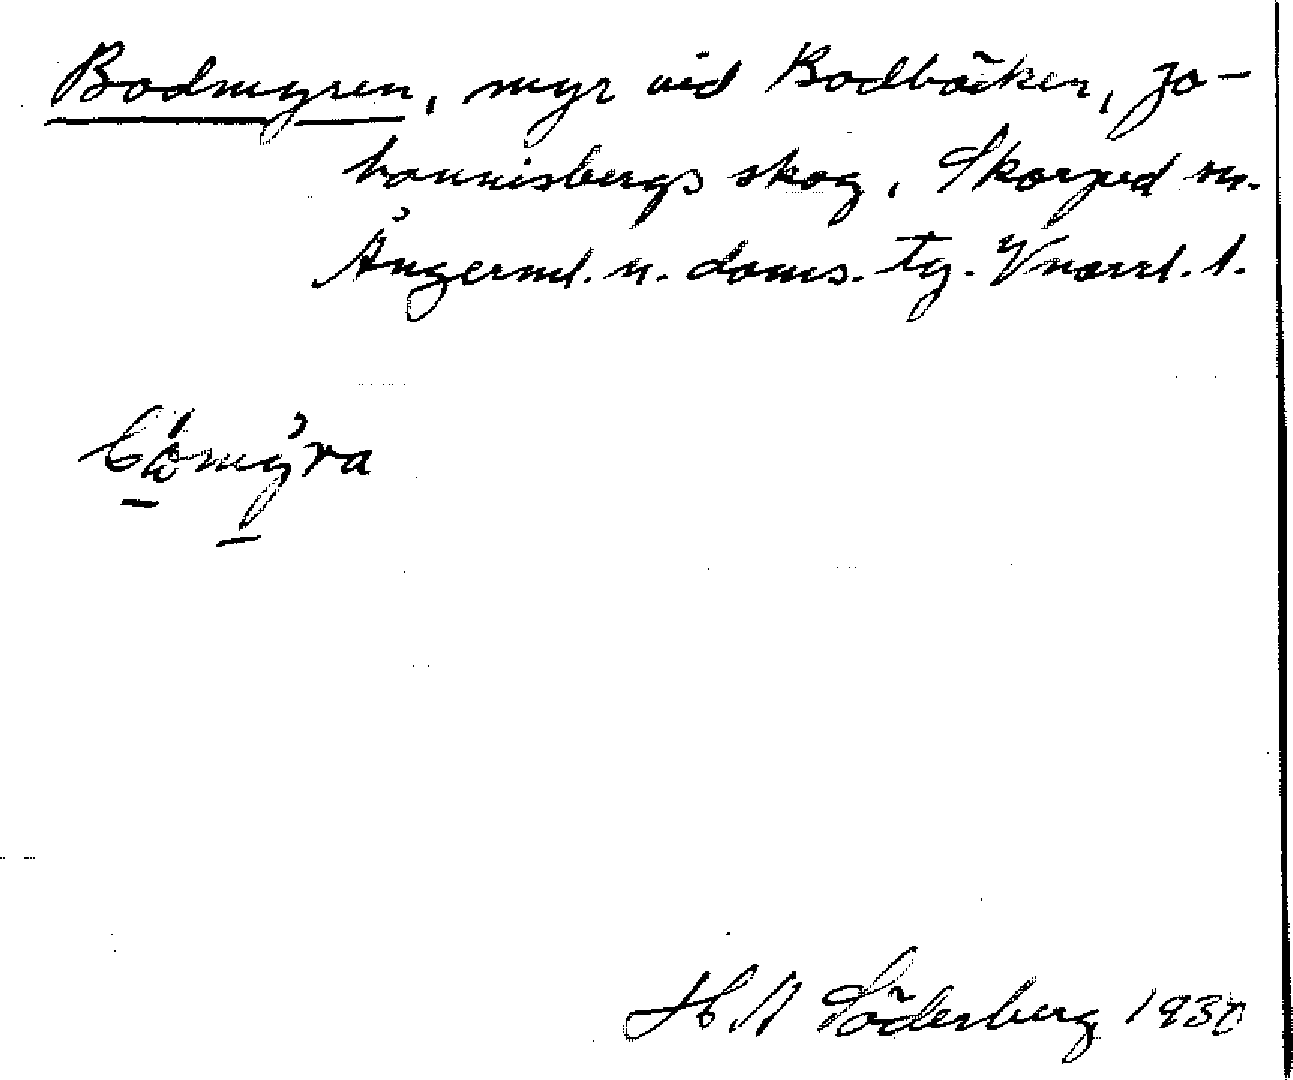 Bodmyren, myr vid Bodbäcken, Jo-
hannisbergs skog, Skorped sn.
Ångerml. n. doms. tg. Vnorrl. l.
H A Söderberg 1930